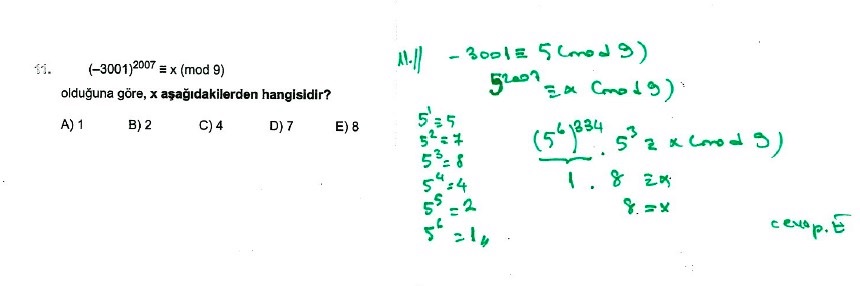 11. (–3001)²⁰⁰⁷ ≡ x (mod 9)
olduğuna göre, x aşağıdakilerden hangisidir?
A) 1 B) 2 C) 4 D) 7 E) 8
11.// -3001 ≡ 5 (mod 9)
5²⁰⁰⁷ ≡ x (mod 9)
5¹ = 5
5² = 7
5³ = 8
5⁴ = 4
5⁵ = 2
5⁶ = 1//
(5⁶)³³⁴ . 5³ ≡ x (mod 9)
1 . 8 ≡ x
8 = x
cevap. E